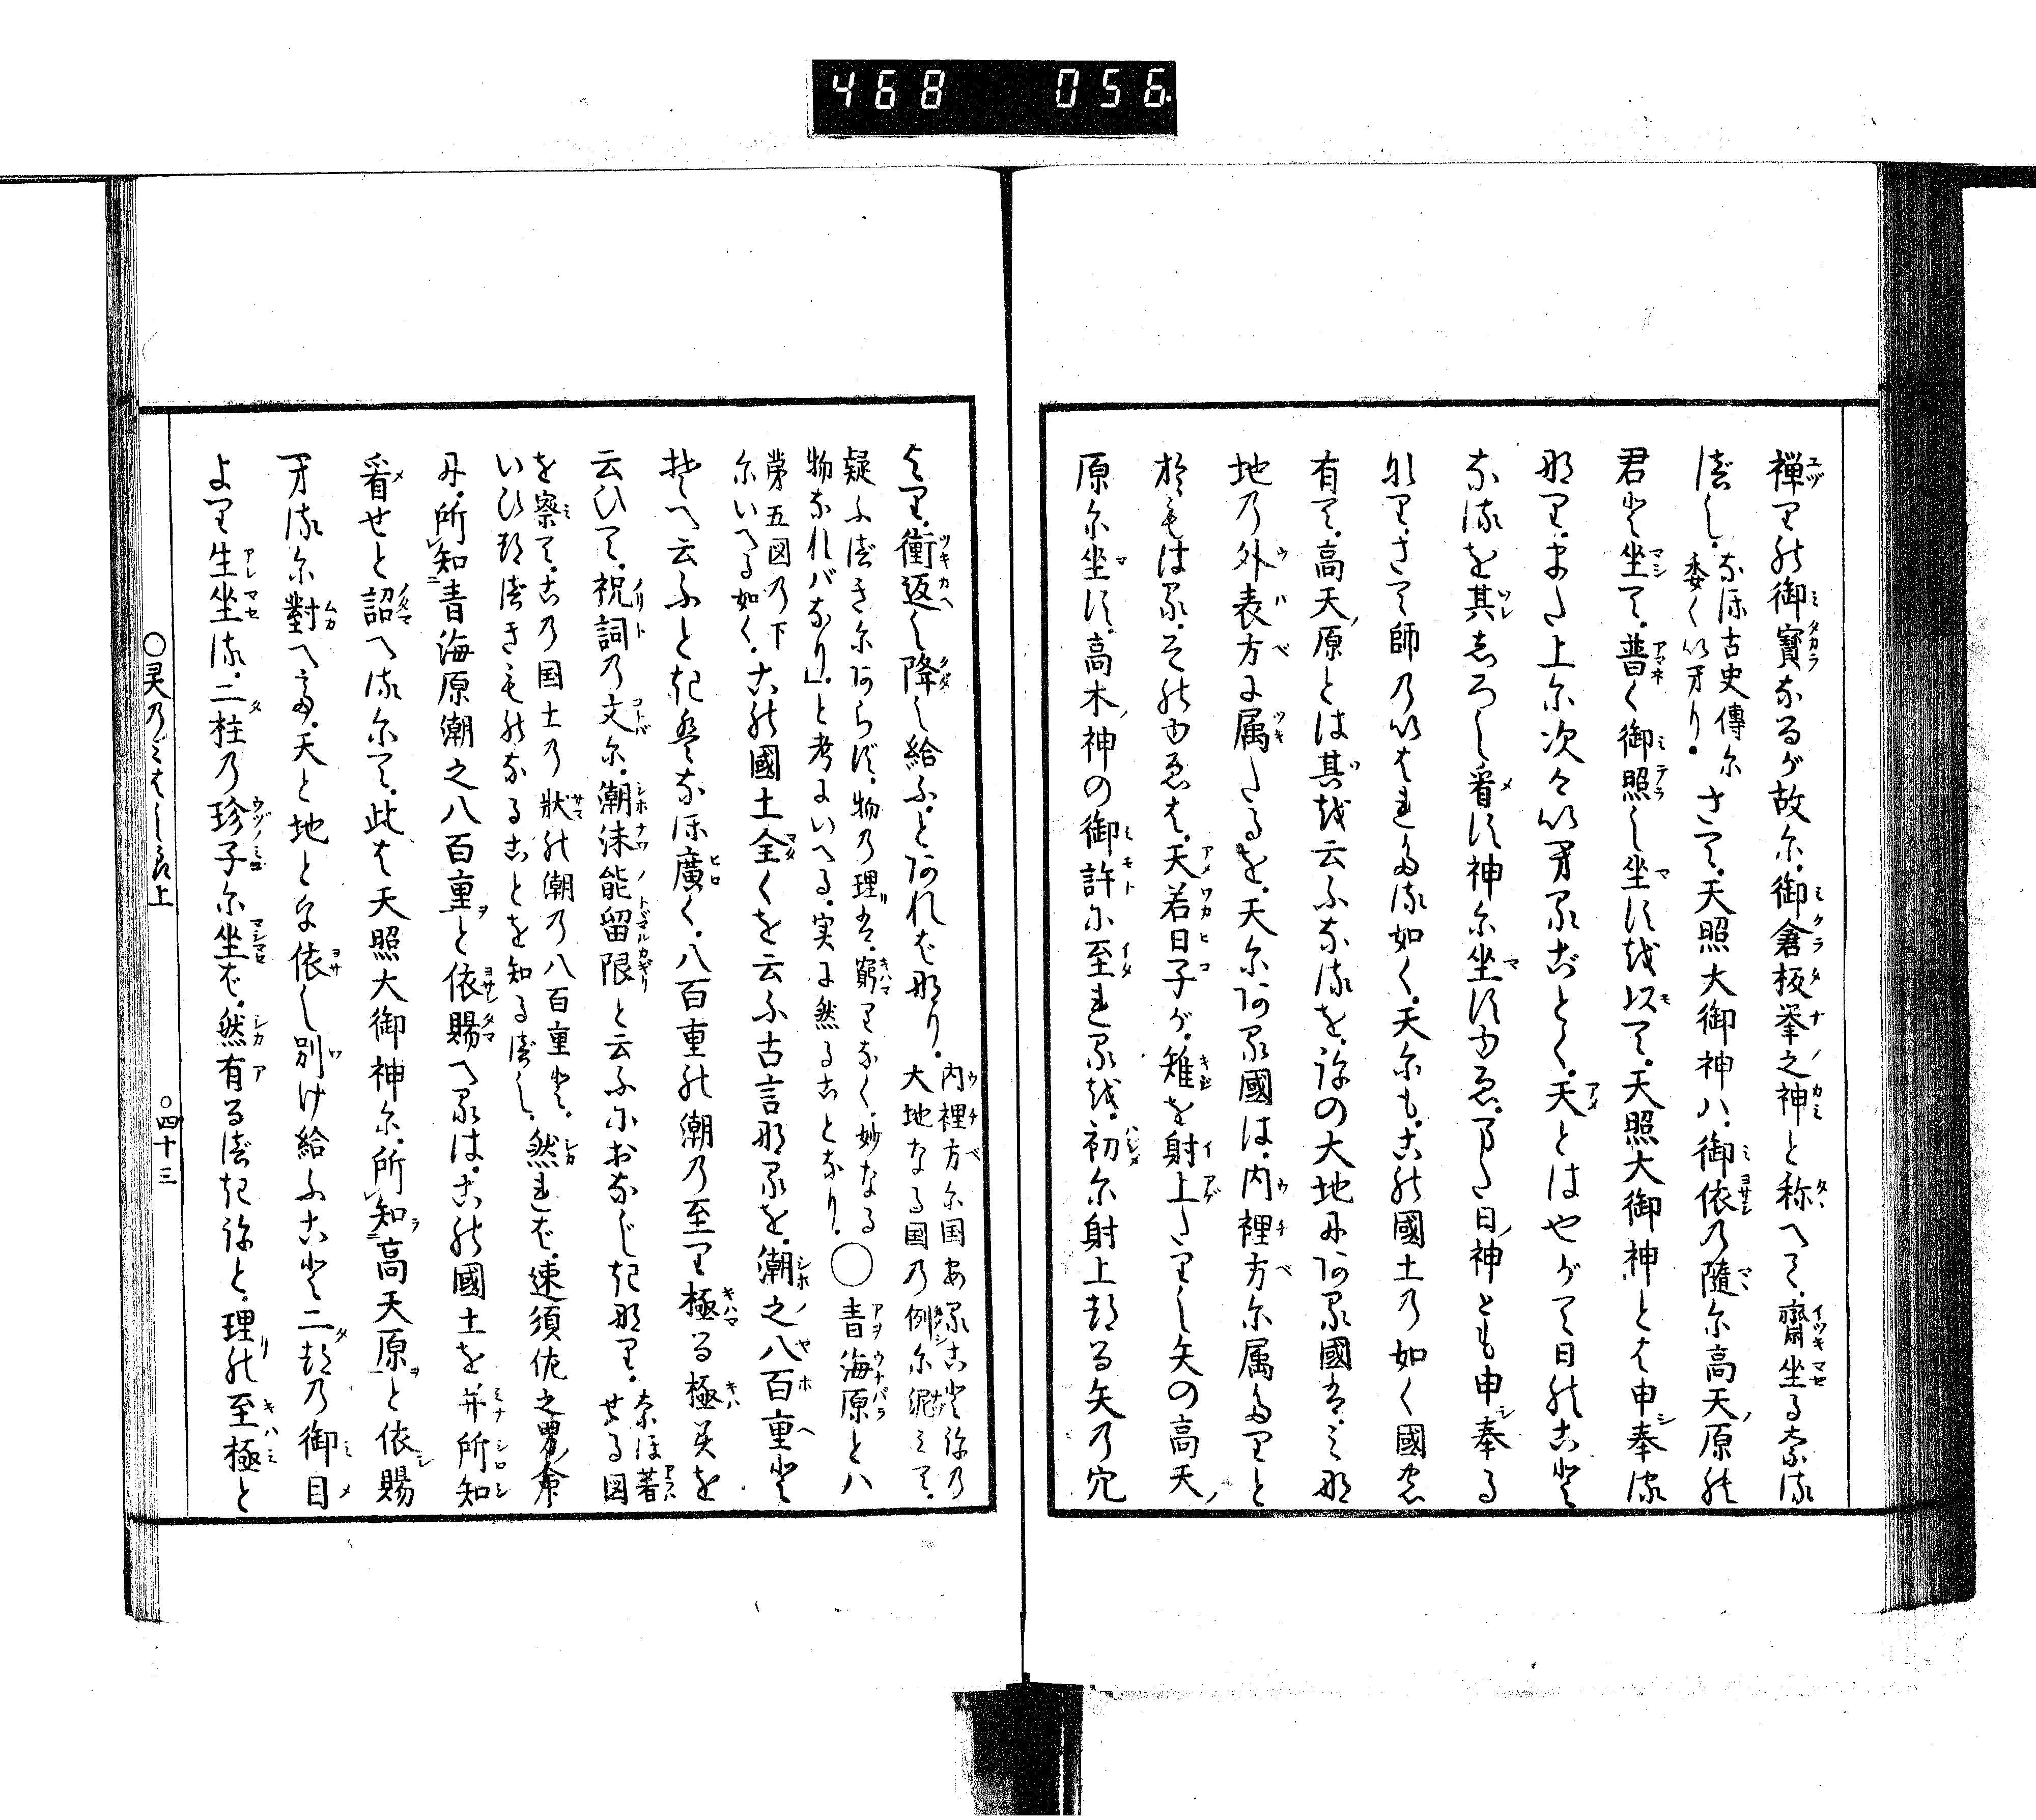 468 056
禅りの御寳なるが故に。御倉板挙之神と称へて。齋坐るなる
べし。なほ古史傳に
委く云り。さて。天照大御神ハ。御依の随に高天原の
君と坐て。普く御照し坐すを以て。天照大御神とは申奉る
なり。また上に次々云るごとく。天とはやがて日のこと
なるを其しろし看す神に坐すゆゑ。日神とも申奉る
なり。さて師の云はれたる如く。天にも。この國土の如く國
有て。高天原とは其を云ふなるを。
地の外表方に属たるを。天にある國は。内裡方に属たりと
おもはる。そのゆゑは。天若日子が。雉を射上たりし矢の高天
原に坐す。高木神の御許に至れるを。初に射上たる矢の穴
より。衝返し降し給ふ。とあればなり。内裡方に国あることの
大地なる国の例に泥みて。
疑ふべきにあらず。物の理は。窮りなく。妙なる
物なれバなり」。と考にいへる。実に然ることなり。○青海原とハ
第五図の下
にいへる如く。この國土全くを云ふ古言なるを。潮之八百重と
さへ云ふときはなほ廣く。八百重の潮の至り極る極みを
云ひて。祝詞の文に。潮沫能留限と云ふにおなじきなり。なほ著
せる図
を察て。この国土の状の潮の八百重と。
いひつべきものなることを知るべし。然れば。速須佐之男命
に。所知青海原潮之八百重と依賜へるは。この國土を。并所知
看せと詔へるにて。此は天照大御神に。所知高天原と依賜
するに對へて。天と地とを依し別け給ふこと二つの御目
より生坐る。二柱の珍子に坐ば。然有るべきと。理の至極と
○灵のみはしら上
○四十三